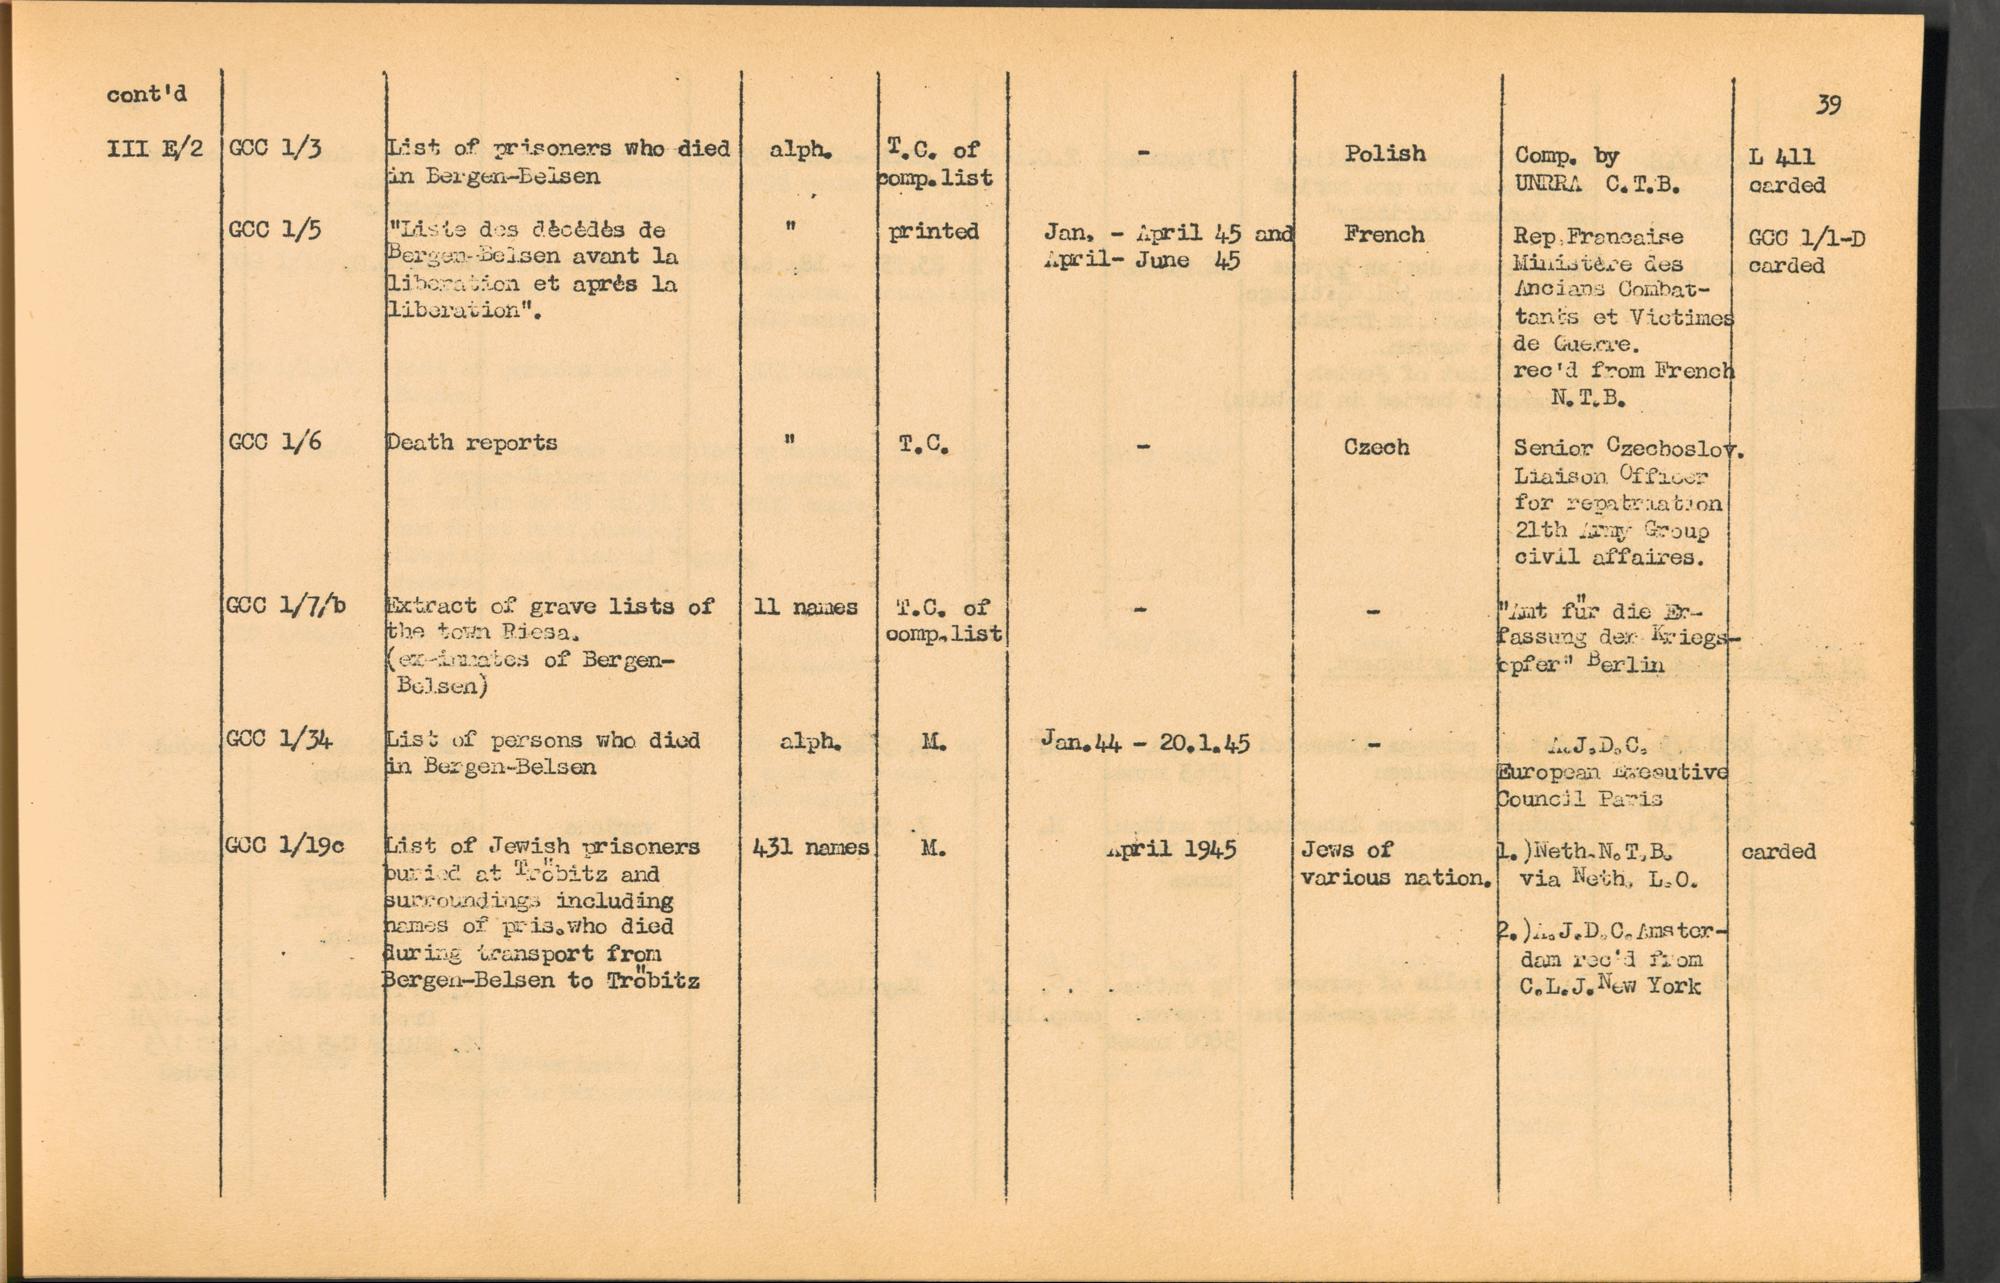 cont'd
39
III E/2 GCC 1/3 List of prisoners who died alph. T.C. of - Polish Comp. by L 411
in Bergen-Belsen comp.list UNRRA C.T.B. carded
GCC 1/5 "Liste des dècédès de " printed Jan. - April 45 and French Rep.Francaise GCC 1/1-D
Bergen-Belsen avant la April- June 45 Ministère des carded
liberation et aprés la Ancians Combat-
liberation". tants et Victimes
de Guerre.
rec'd from French
N.T.B.
GCC 1/6 Death reports " T.C. - Czech Senior Czechoslov.
Liaison Officer
for repatriation
21th Army Group
civil affaires.
GCC 1/7/b Extract of grave lists of 11 names T.C. of - - "Amt für die Er-
the town Riesa. comp.list fassung der Kriegs-
(ex-inmates of Bergen- opfer" Berlin
Belsen)
GCC 1/34 List of persons who died alph. M. Jan.44 - 20.1.45 - A.J.D.C.
in Bergen-Belsen European Executive
Council Paris
GCC 1/19c List of Jewish prisoners 431 names M. April 1945 Jews of 1.)Neth.N.T.B. carded
buried at Tröbitz and various nation. via Neth. L.O.
surroundings including
names of pris.who died 2.)A.J.D.C.Amster-
during transport from dam rec'd from
Bergen-Belsen to Tröbitz C.L.J.New York